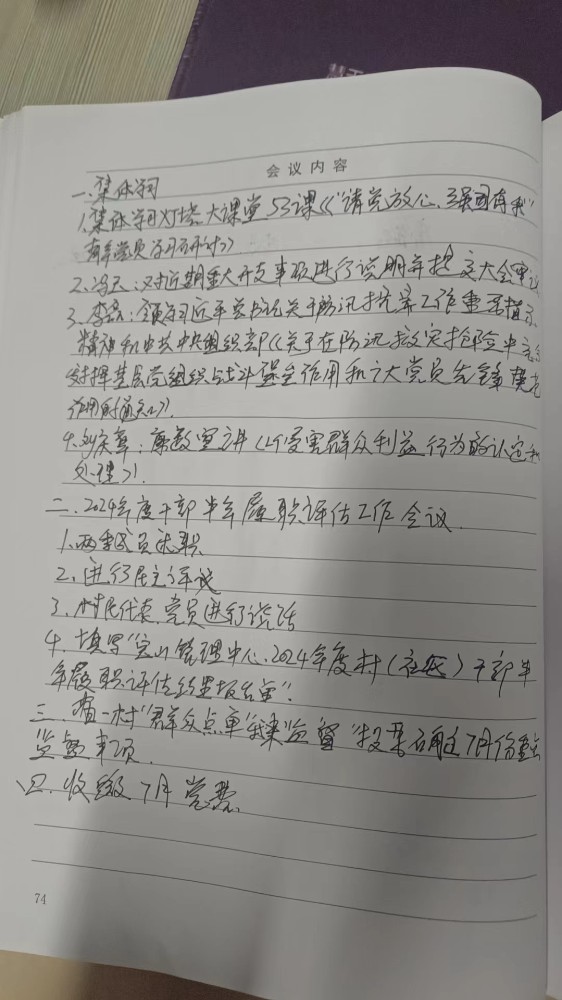 会议内容
一、集体学习
1.集体学习灯塔大课堂53课《"请党放心、强国有我"
青年党员学习研讨》
2. 对近期重大开支事项进行说明并提交大会审议
3. 李磊：领学习近平总书记关于防汛抗旱工作重要指示
精神和中共中央组织部《关于在防汛救灾抢险中充分
发挥基层党组织战斗堡垒作用和广大党员先锋模范
作用的通知》.
4. 廉政宣讲《侵害群众利益行为的认定和
处理》.
二、2024年度干部半年履职评估工作会议.
1.两委成员述职
2、进行民主评议
3、村民代表、党员进行谈话
4、填写"管理中心、2024年度村（社区）干部半
年履职评估结果报告单".
三、一村"群众点单我来监督"投票确定7月份重点
监督事项.
四、收缴7月党费.
74